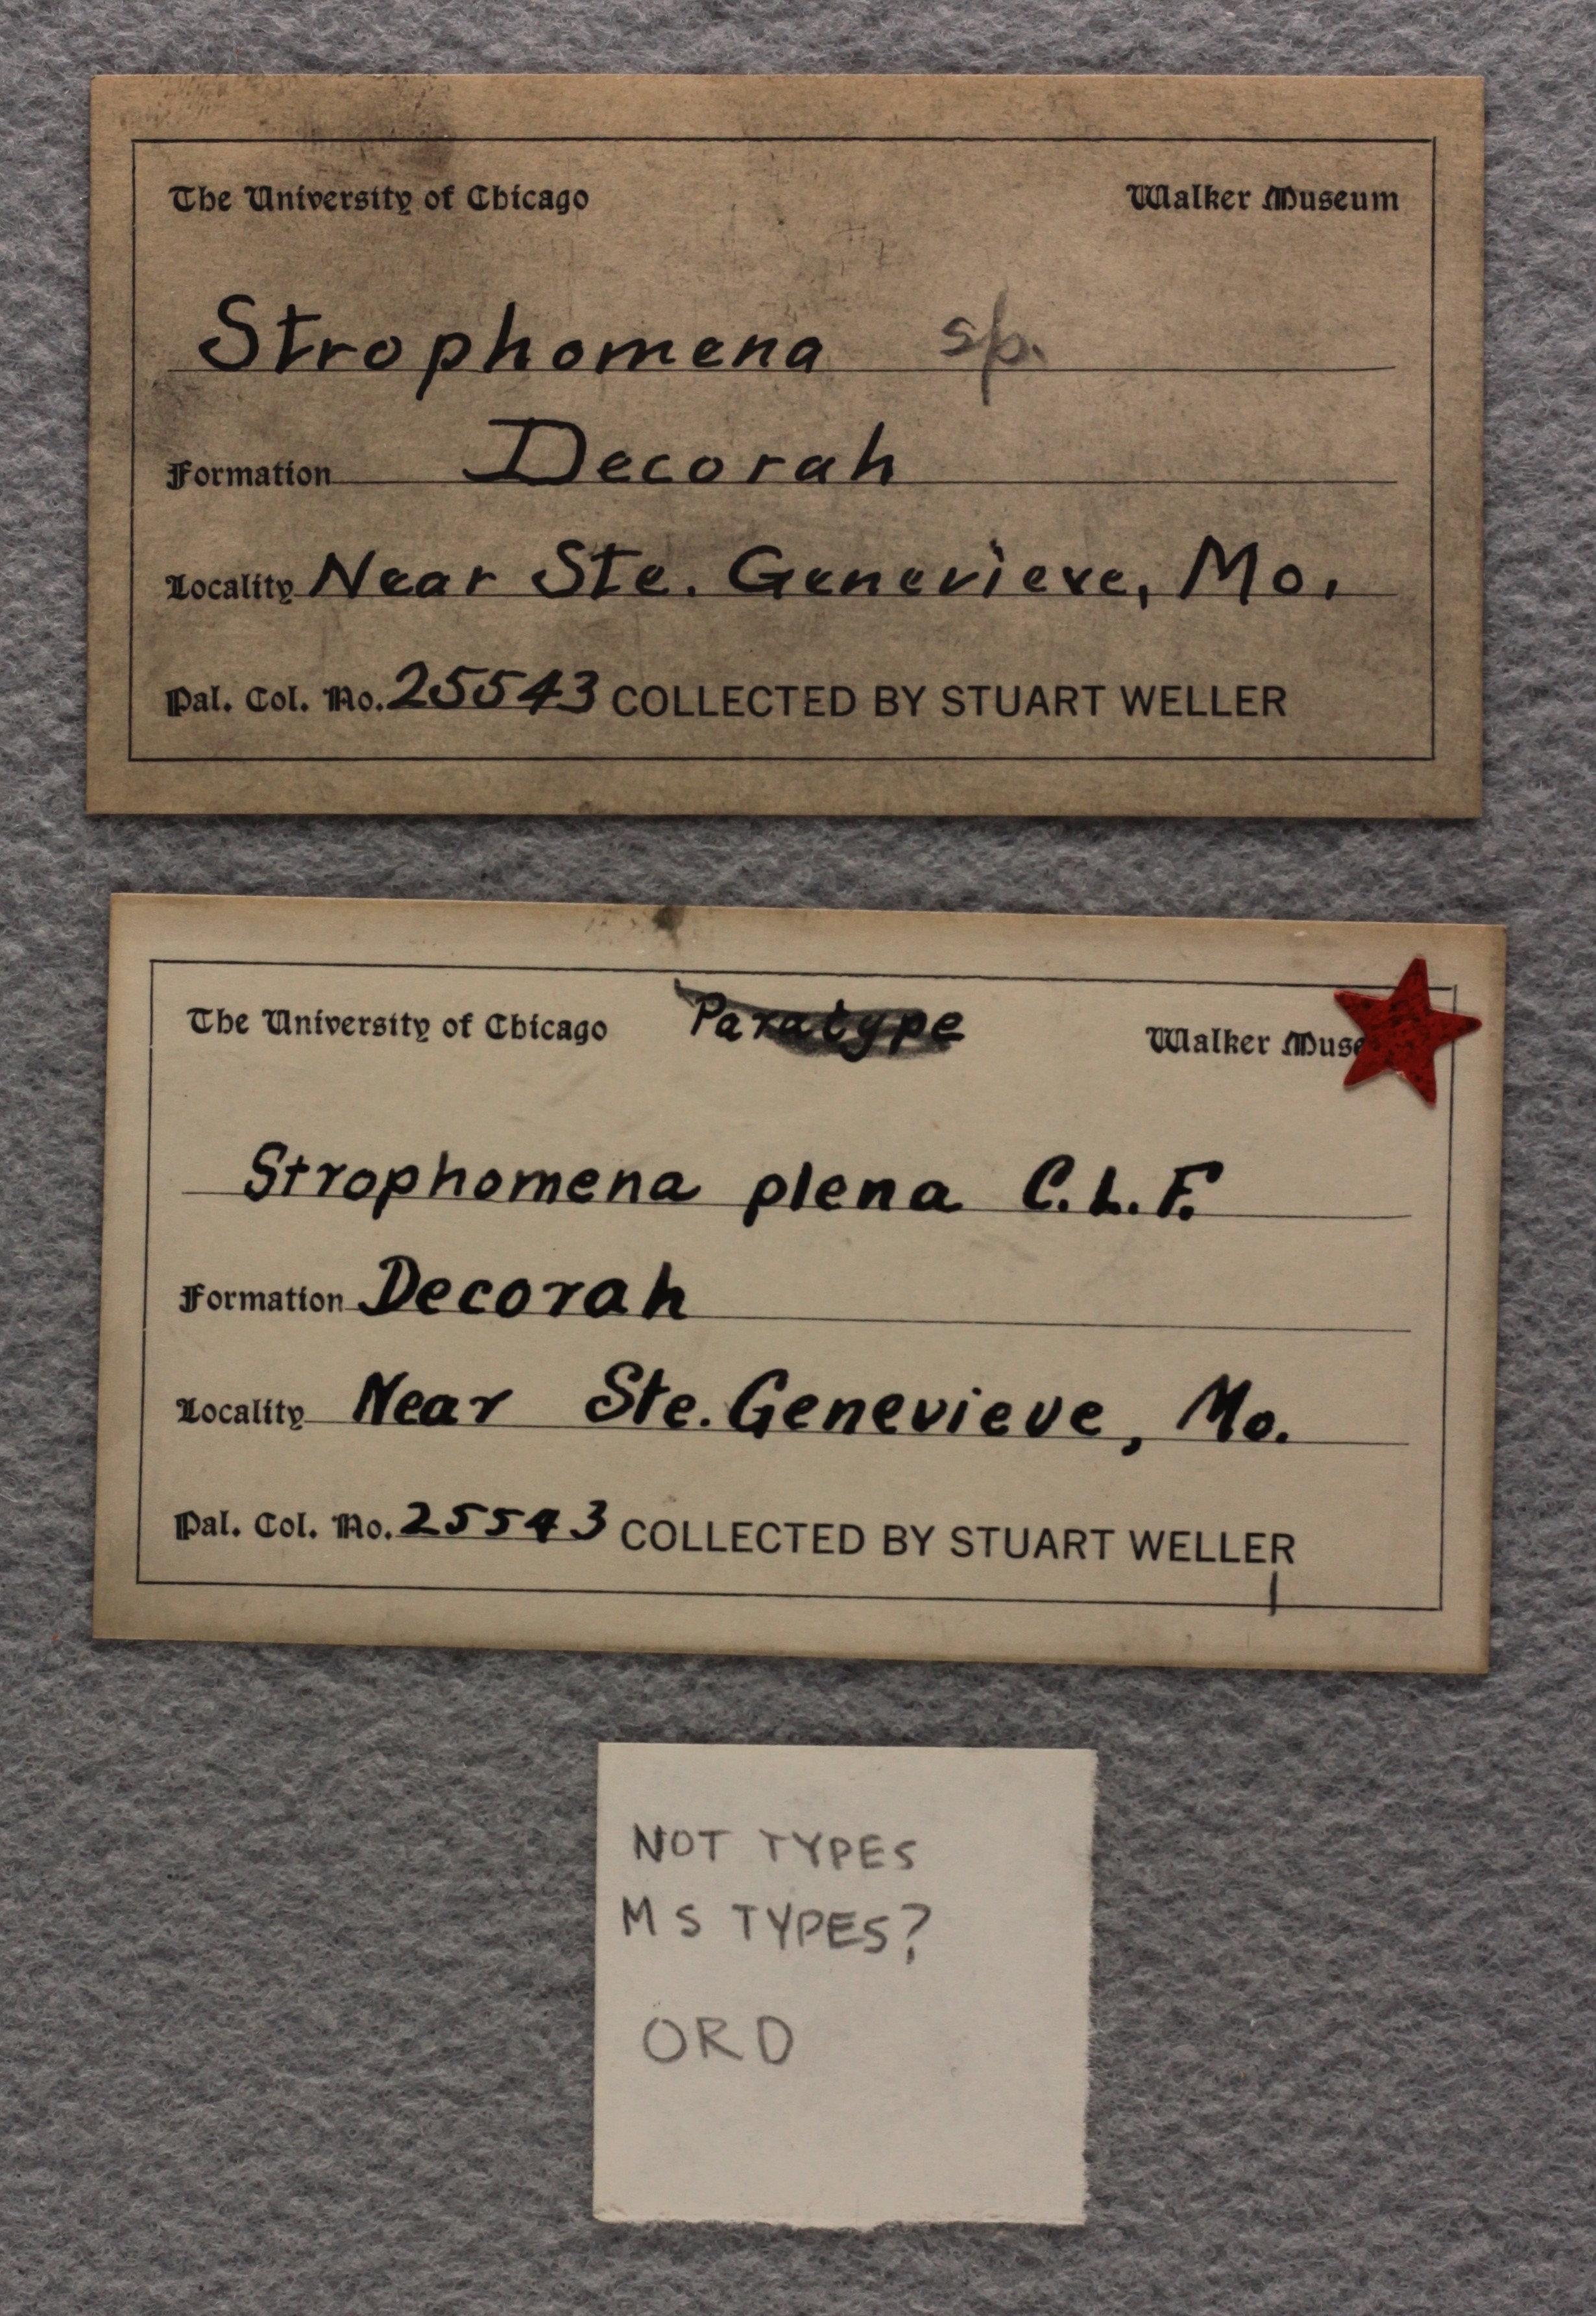 The University of Chicago Walker Museum
Strophomena sp.
Formation Decorah
Locality Near Ste. Genevieve, Mo.
Pal. Col. No. 25543 COLLECTED BY STUART WELLER
The University of Chicago Paratype Walker Muse
Strophomena plena C.L.F.
Formation Decorah
Locality Near Ste. Genevieve, Mo.
Pal. Col. No. 25543 COLLECTED BY STUART WELLER
NOT TYPES
MS TYPES?
ORD